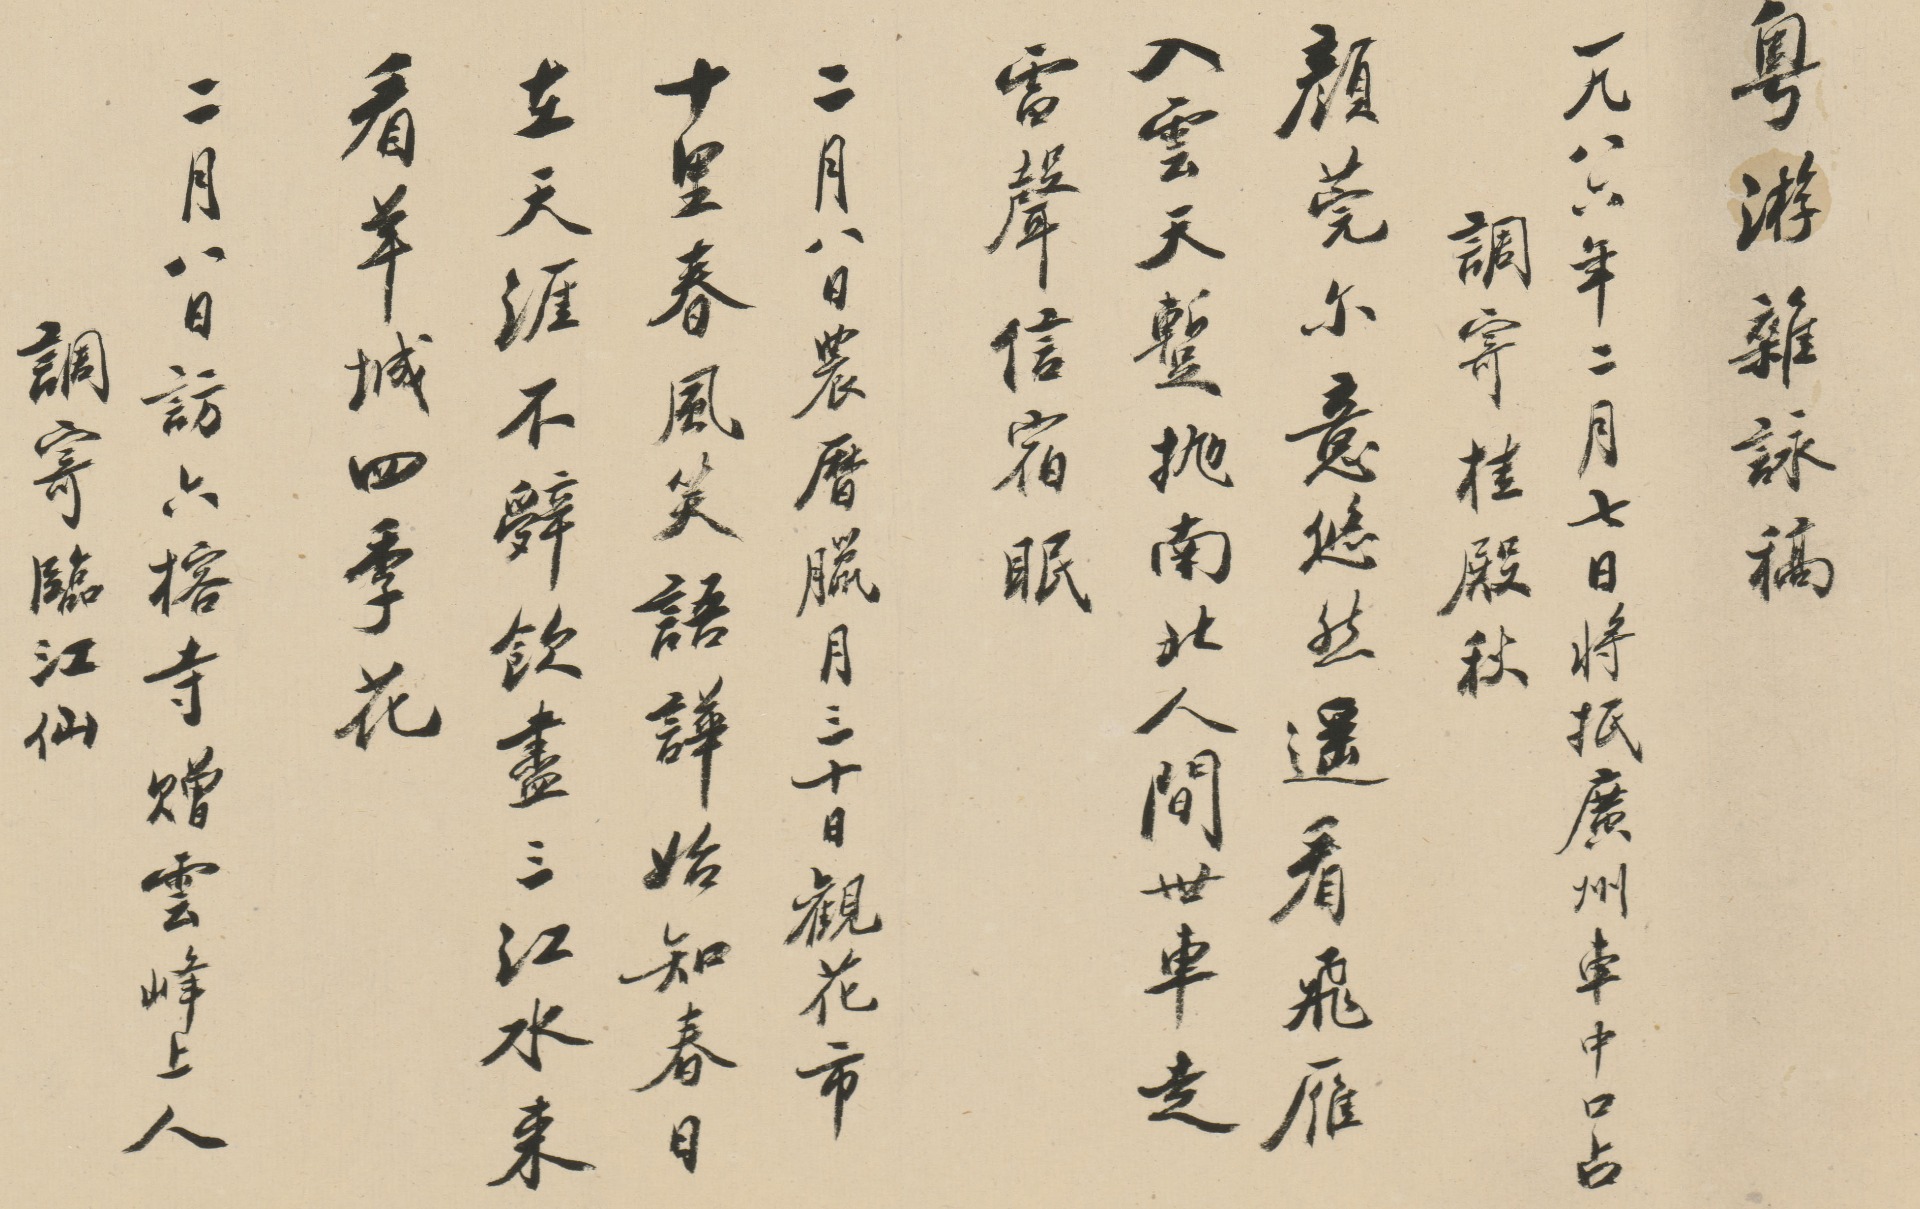 粵游雜詠稿
一九八六年二月七日將抵廣州車中口占
調寄桂殿秋
顏莞尓意悠然遥看飛雁
入雲天暫抛南北人間世車走
雷聲信宿眠
二月八日農曆臘月三十日觀花市
十里春風笑語譁始知春日
在天涯不辭飲盡三江水来
看羊城四季花
二月八日訪六榕寺贈雲峰上人
調寄臨江仙